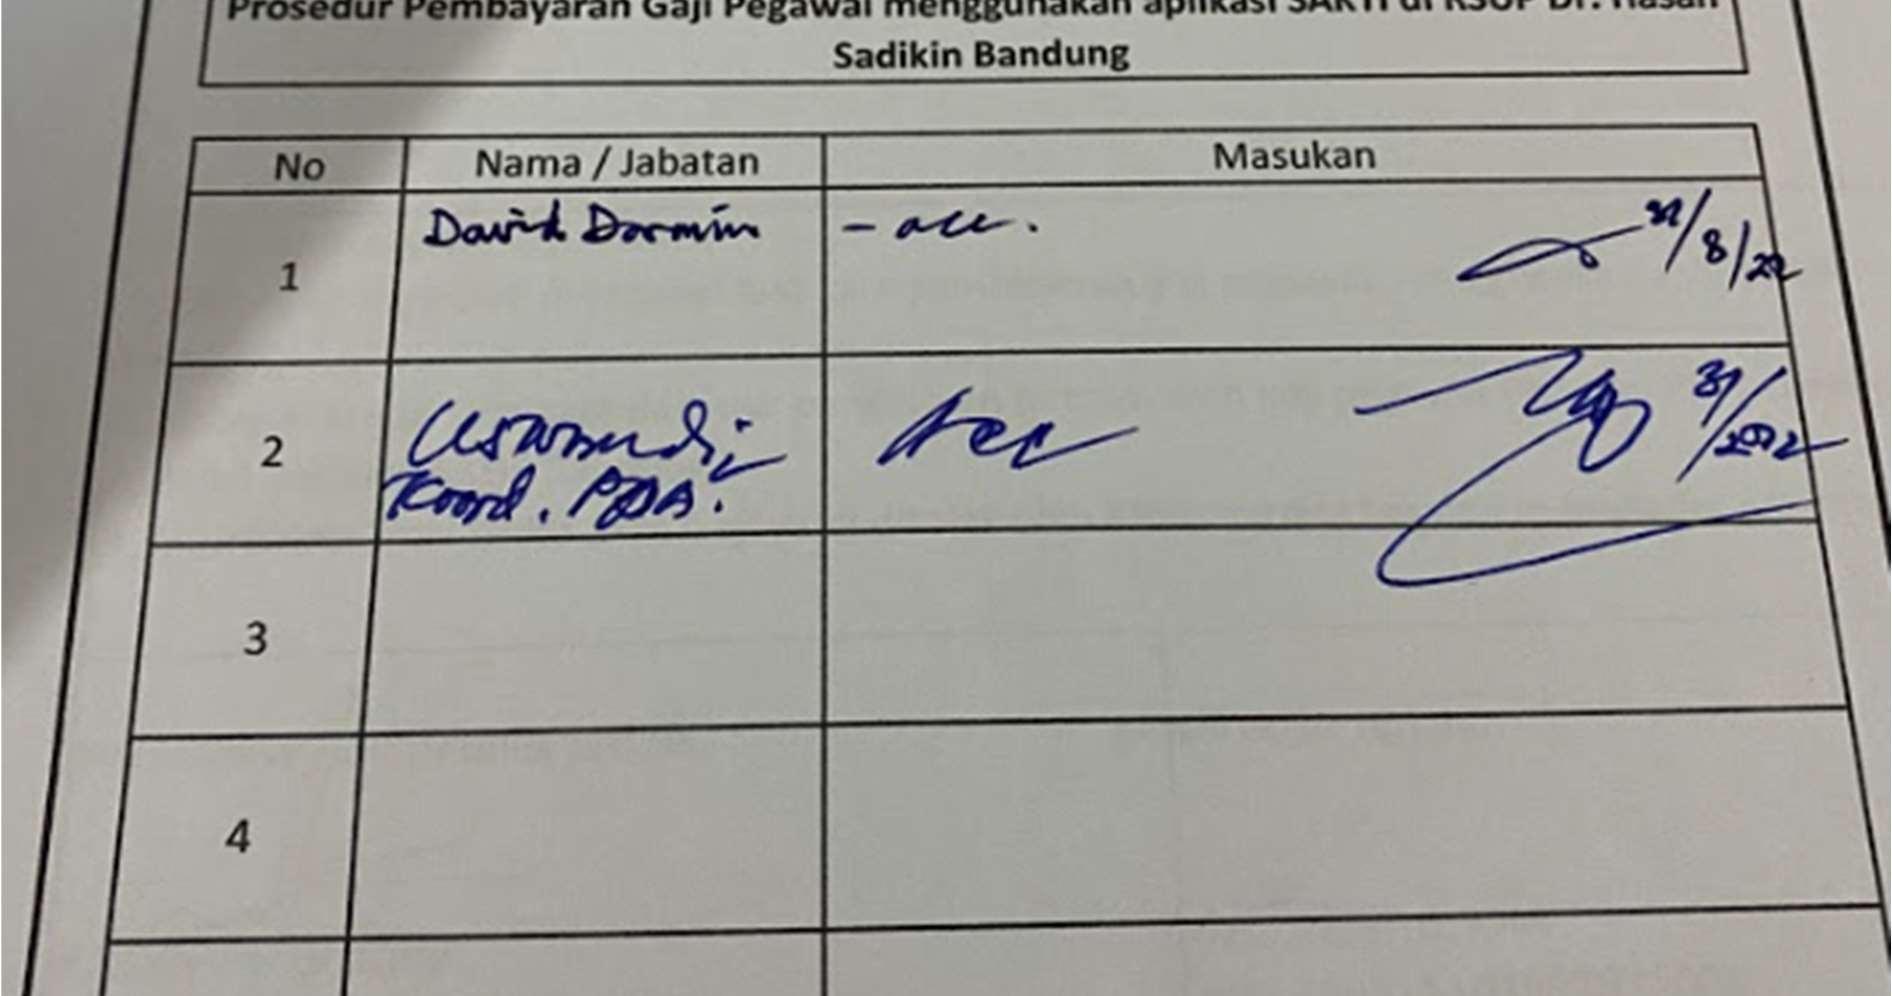 Prosedur Pembayaran Gaji Pegawai menggunakan aplikasi SAKTI di RSUP Dr. Hasan
Sadikin Bandung
No Nama / Jabatan Masukan
1 David Darmin - acc. 31/8/22
2 Uswandi Acc 31/2022
Koord. PDA.
3
4